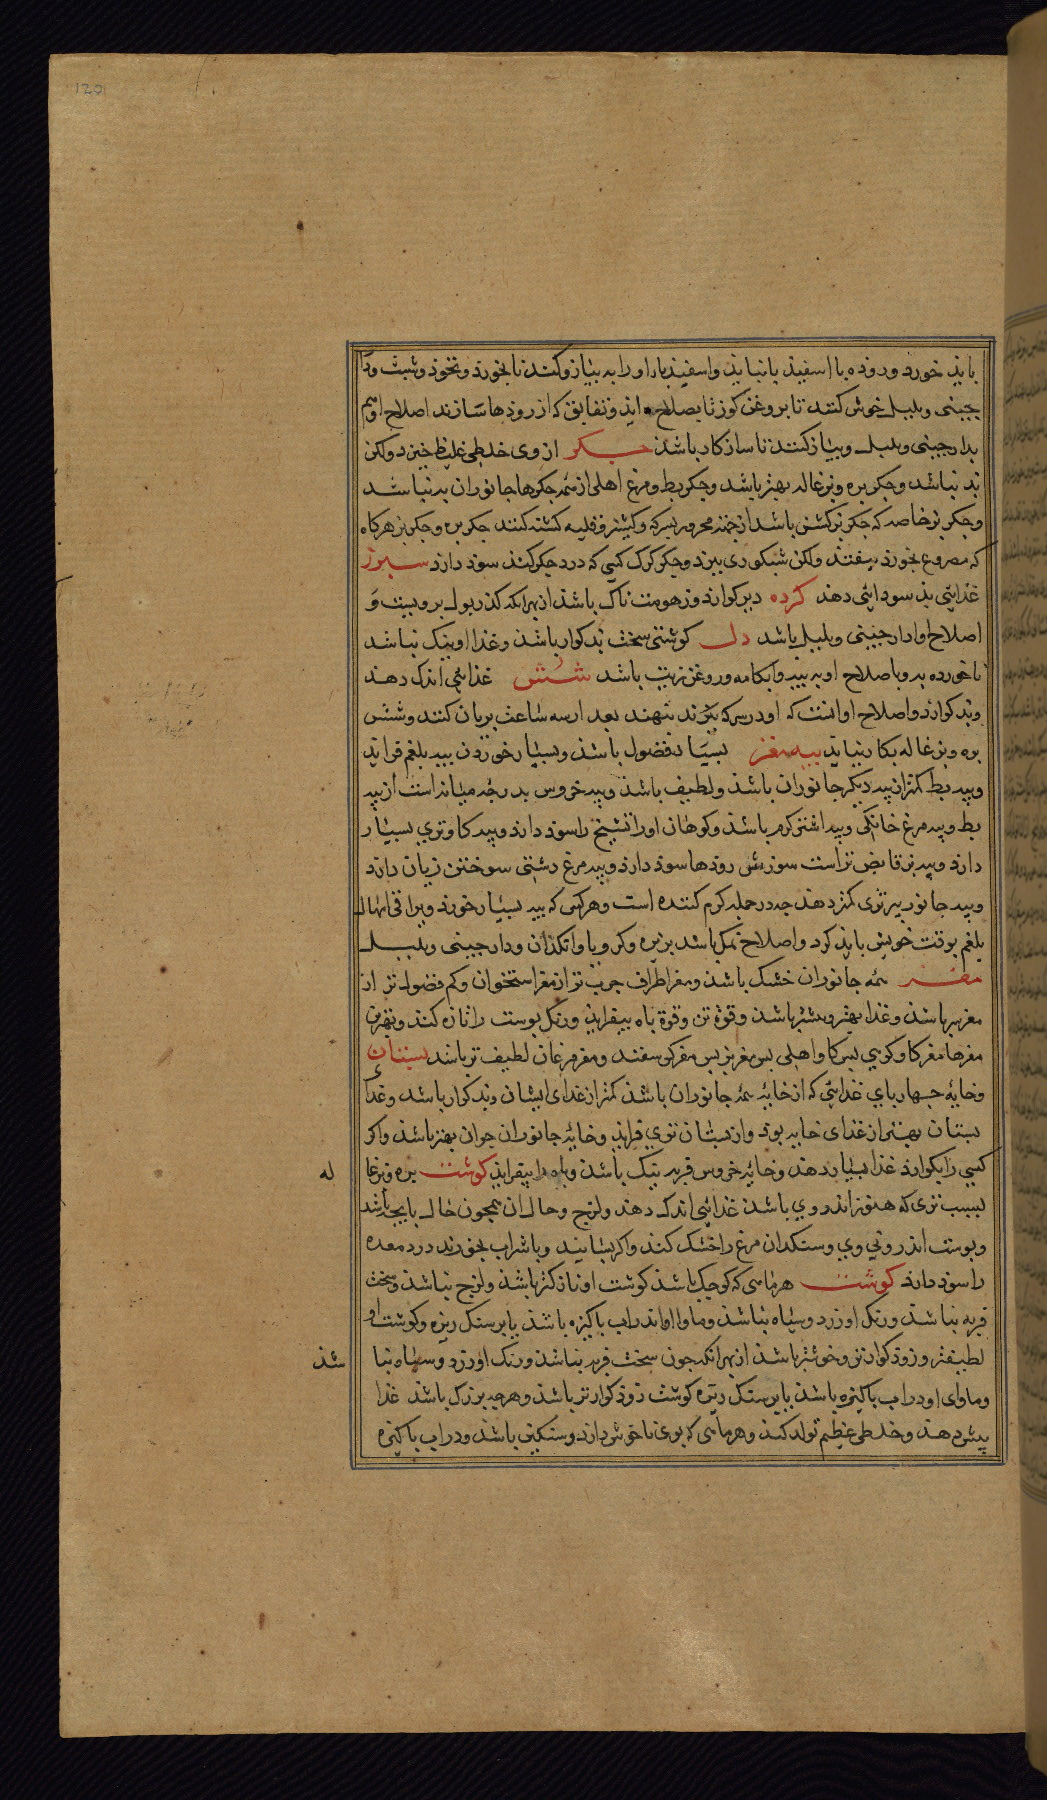 120
باید خورد وروده با اسفید بانباید واسفیدباد اورا به بیاز وکند نا بخورد ونخود وشبث ودا
جینی وبلبل خوش کنند تا بروغن کوز تا بصلاح اید ونفایق که از رودها سازند اصلاح اوهم
بدارجینی وبلبل وبیاز کنند تا سازکار باشد جکر از وی خلطی غلیظ خیزد ولکن
بد نباشد وجکر بره وبزغاله بهتر باشد وجکر بط ومرغ اهلی از همه جکرها جانوران بد نباشد
وجکر بز خاصه که جکر بز کشن باشد از جنه محرور بسرکه وکشنیز وقلیه کشته کنند جکر بره وجکر بز هرکاه
که مصروع بخورد بیفتد ولکن شبکوری ببرد وجکر کرک کسی که درد جکر کند سود دارد سبرز
غذایی بد سودایی دهد کرده دیرکوارد وزهومت ناک باشد ازبهر انکه کذر بول بروبیست و
اصلاح او دارجینی وبلبل باشد دل کوشتی سخت بدکوار باشد وغذا او نیک نباشد
ناخورده به وباصلاح او به بید وابکامه وروغن زیت باشد شش غذایی اندک دهد
وبدکوارد واصلاح او انست که اودر سرکه بزند بنهند بعد ازسه ساعت بریان کنند وشش
بره وبزغاله بکار نیاید بیه مغز بسیار فضول باشد وبسیار خوردن بیه بلغم فزاید
وبیه بط کمتر از بیه دیکر جانوران باشد ولطیف باشد وبیه خروس بدرجه میانه است از بیه
بط وبیه مرغ خانکی وبیه اشتر کرم باشد وکوهان اورا تشنج را سود دارد وبیه کاو تری بسیار
دارد وبیه بز قابض تر است سوزش رودها سود دارد وبیه مرغ دشتی سوختن زیان دارد
وبیه جانور بیر تری کمتر دهد جه در جمله کرم کننده است وهرکسی که بیه بسیار خورد وبرا قی اسهال
بلغم بوقت خویش باید کرد واصلاح نمک باشد بزیره وکرویا وانکذان ودارجینی وبلبل
مغز همه جانوران خشک باشد ومغز اطراف جرب تر از مغز استخوان وکم فضول تر از
مغز سر باشد وغذا بهتر وبیشتر باشد وقوة تن وقوة باه بیفزاید ورنک بوست را تازه کند وبهترین
مغزها مغز کاو کوهی بس کاو اهلی بس مغز بز بس مغز کوسفند ومغز مرغان لطیف تر باشد بستان
وخایه جهاربای غذایی که از خایه همه جانوران باشد کمتر از غدای ایشان وبدکوار باشد وغدا
بستان بهتر از غدای خایه بود واز بستان تری فزاید وخایه جانوران جوان بهتر باشد واکر
کسی را بکوارد غذا بسیار دهد وخایه خروس فربه نیک باشد وباه را بیفزاید کوشت بره وبزغا
له
بسبب تری که هنوز اندر وی باشد غذایی اندک دهد ولزج وحال ان همجون حال بایجه باشد
وبوست اندرونی وی وسنکدان مرغ را خشک کنند واکر بسایند وباشراب بخورند درد معده
را سود دارد کوشت هر ماهی که کوجک باشد کوشت او نازکتر باشد ولزج نباشد وسخت
فربه نباشد ورنک او زرد وسیاه نباشد وماوا او اندر اب باکیزه باشد یا برسنک ریزه وکوشت او
لطیفتر وزودکوارتر وخوشتر باشد ازبهر انکه جون سخت فربه نباشد ورنک او زرد وسیاه نبا
شد
وماوای او در اب باکیزه باشد یا برسنک ریزه کوشت زودکوارتر باشد وهرجه بزرک باشد غذا
بیش دهد وخلطی عظیم تولد کند وهرماهی که بوی ناخوش دارد وسنکین باشد ودر اب باکیزه